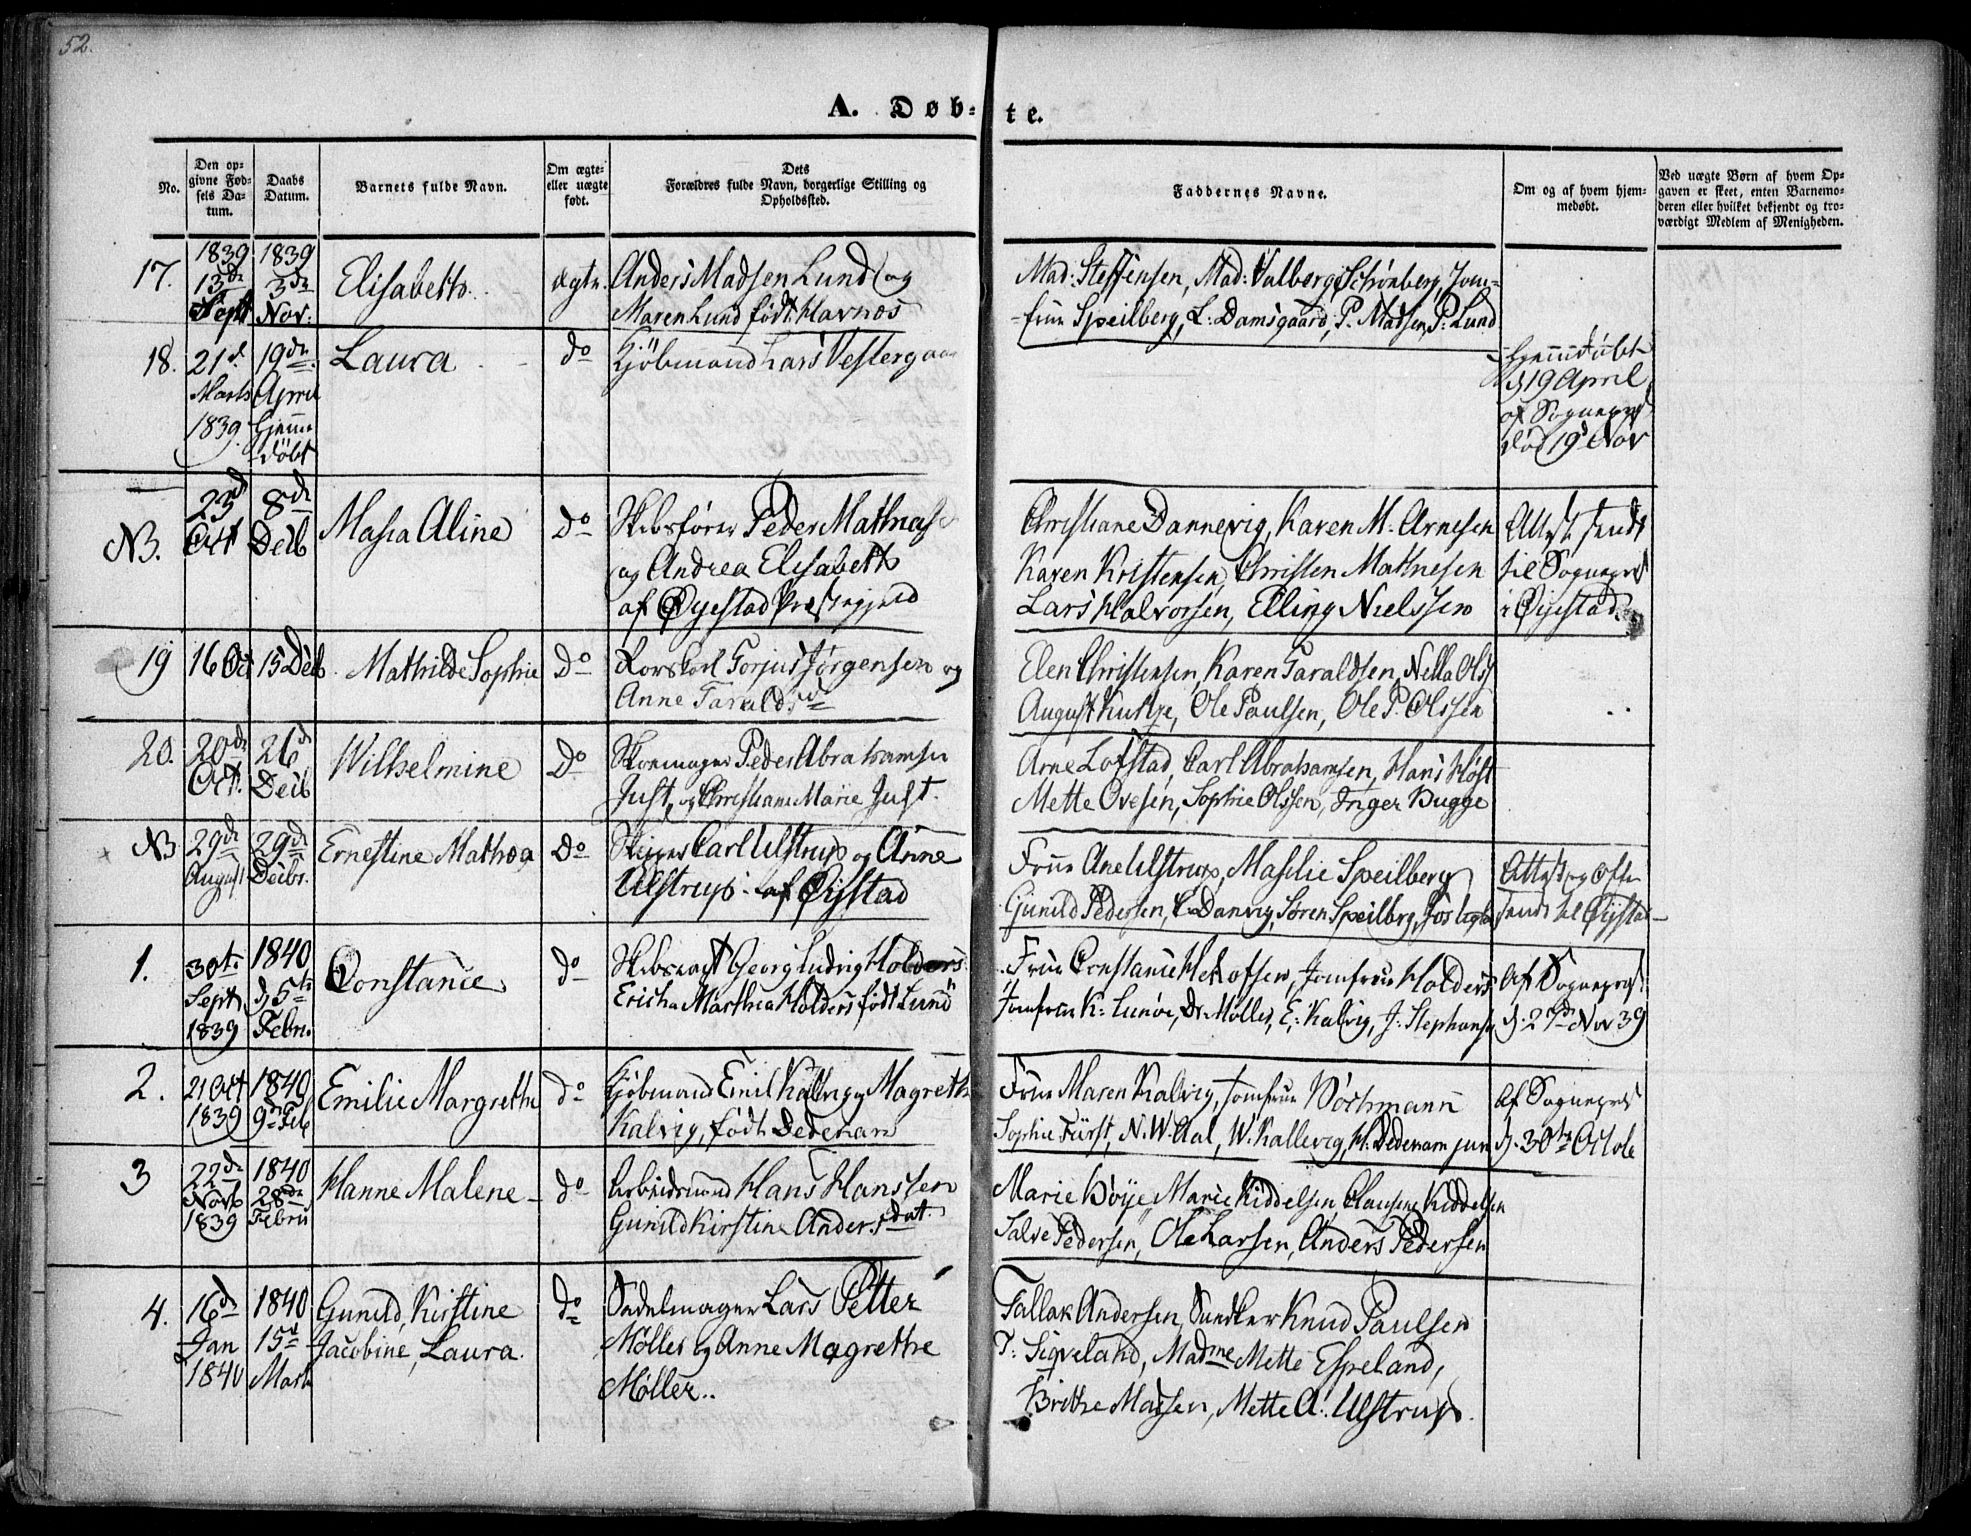 52.
A. Døb-te.
No.
Den op-
givne Fød-
sels Da-
tum.
Daabs
Datum.
Barnets fulde Navn.
Om ægte-
eller uægte
født.
Dets
Forældres fulde Navn, borgerlige Stilling og
Opholdssted.
Faddernes Navne.
Om og af hvem hjem-
medøbt.
Ved uægte Børn af hvem Op-
gaven er skeet, enten Barnemo-
deren eller hvilket bekjendt og tro-
værdigt Medlem af Menigheden.
17.
1839
13de
Sept
1839
3de
Nov:
Elisabeth
ægte.
Anders Madsen Lund og
Maren Lund født Havnøs
Mad: Steffensen, Mad: Valberg, Schønberg, Jom-
-frue Speilberg, L: Damsgaard, P. Madsen, P: Lund
18.
21d.
Marts
1839.
19de
April
Hjemme
døbt
Laura
do
Kjøbmand Lars Vestergaa
Hjemmedøbt
d 19 April
af Sognepr
død 19 Nov
NB.
23d
Oct
8de
Decb
Masia Aline
Do
Skibsfører Peder Mathias
og Andrea Elisabeth
af Øyestad Præstegjeld
Christiane Dannevig, Karen M. Arnesen
Karen Kristensen, Christen Mathiesen
Lars Halvorsen, Elling Nielssen
Attest sendt
til Sognepr
i Øyestad
19
16 Oct
15 Decb.
Mathilde Sophie
Do
Torjus Jørgensen og
Anne Taraldsd
Elen Christensen, Karen Taraldsen, Nella Ols
August, Ole Paulsen, Ole P. Olssen
20.
20de
Oct.
26d
Decb
Wilhelmine
Do
Skomager Peder Abrahamsen
Just, og Christiane Marie Just.
Arne Lofstad, Carl Abrahamsen, Hans Høst
Mette Ovesen, Sophie Olssen, Inger Bugge
NB
29de
August
29de
Decbr.
Ernestine Mathea
Do
Skipper Carl Ulstrup og Anne
Ulstrup af Øistad
Frue Ane Ulstrup, Maselie Speilberg
Gunild Pedersen, C. Danvig, Søren Speilberg,
Attest og
sendt til Øistad
1.
30te
Sept
1839
1840
d 5te
Febru.
Constance
do
Georg Ludvig Holders
Ericha Marthea Holders født Lund
Frue Constance Helofsen, Jomfrue Holders
Jomfrue K: Lunøe, Dr. Møller, E: Kalvig, J: Stephansen
Af Sognepr
d. 27de Nov 39
2.
21 Oct
1839
1840
9de Feb
Emilie Margrethe
do
Kjøbmand Emil Kalvig og Magrethe
Kalvig, født Dedenam
Frue Maren Kalvig, Jomfrue Worthmann
Sophie Fürst, N. W. Aal, W. Kallevig, H. Dedenam jun
Af Sognepr
d. 30te Octob
3
22de
Novb
1839
1840
28de
Febru
Hanne Malene
do
Arbeidsmand Hans Hanssen
Gunild Kirstine Andersdat.
Marie Høye, Marie Kiddelsen, Clausine Kiddelsen
Salve Pedersen, Ole Larsen, Anders Pedersen
4.
16de
Jan
1840
1840
15d
Marts
Gunild, Kirstine
Jacobine, Laura.
do
Sadelmager Lars Petter
Møller og Anne Magrethe
Møller..
Tallak Andersen, Knud Paulsen
T: Sigveland, Madme Mette Espeland,
Brithe Madsen, Mette A: Ulstrup.